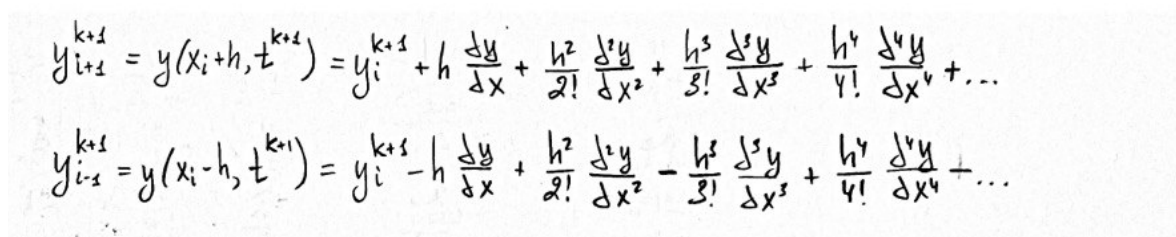 y_{i+1}^{k+1} = y(x_i+h, t^{k+1}) = y_i^{k+1} + h \frac{∂y}{∂x} + \frac{h^2}{2!} \frac{∂^2y}{∂x^2} + \frac{h^3}{3!} \frac{∂^3y}{∂x^3} + \frac{h^4}{4!} \frac{∂^4y}{∂x^4} + ...
y_{i-1}^{k+1} = y(x_i-h, t^{k+1}) = y_i^{k+1} - h \frac{∂y}{∂x} + \frac{h^2}{2!} \frac{∂^2y}{∂x^2} - \frac{h^3}{3!} \frac{∂^3y}{∂x^3} + \frac{h^4}{4!} \frac{∂^4y}{∂x^4} + ...